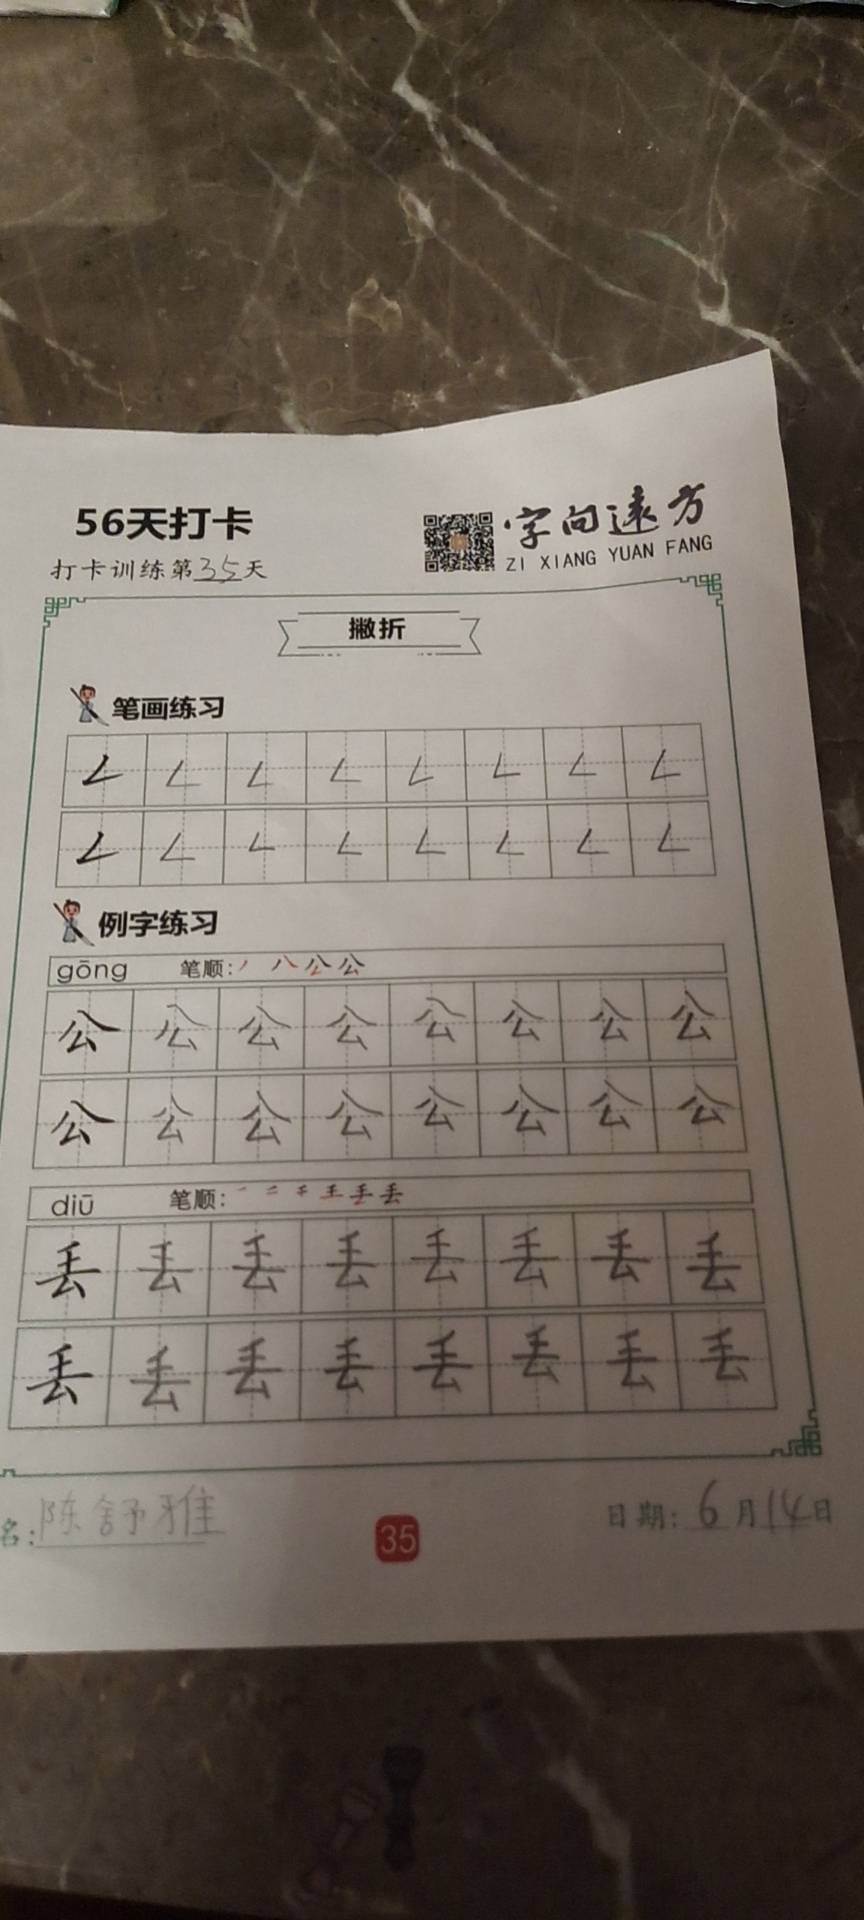 56天打卡
字向远方
ZI XIANG YUAN FANG
打卡训练第35天
撇折
笔画练习
例字练习
gōng 笔顺:丿 八 公 公
公 公 公 公 公 公 公 公
公 公 公 公 公 公 公 公
diū 笔顺:一 二 千 王 丢 丢
丢 丢 丢 丢 丢 丢 丢 丢
丢 丢 丢 丢 丢 丢 丢 丢
名:陈舒雅
35
日期:6月14日